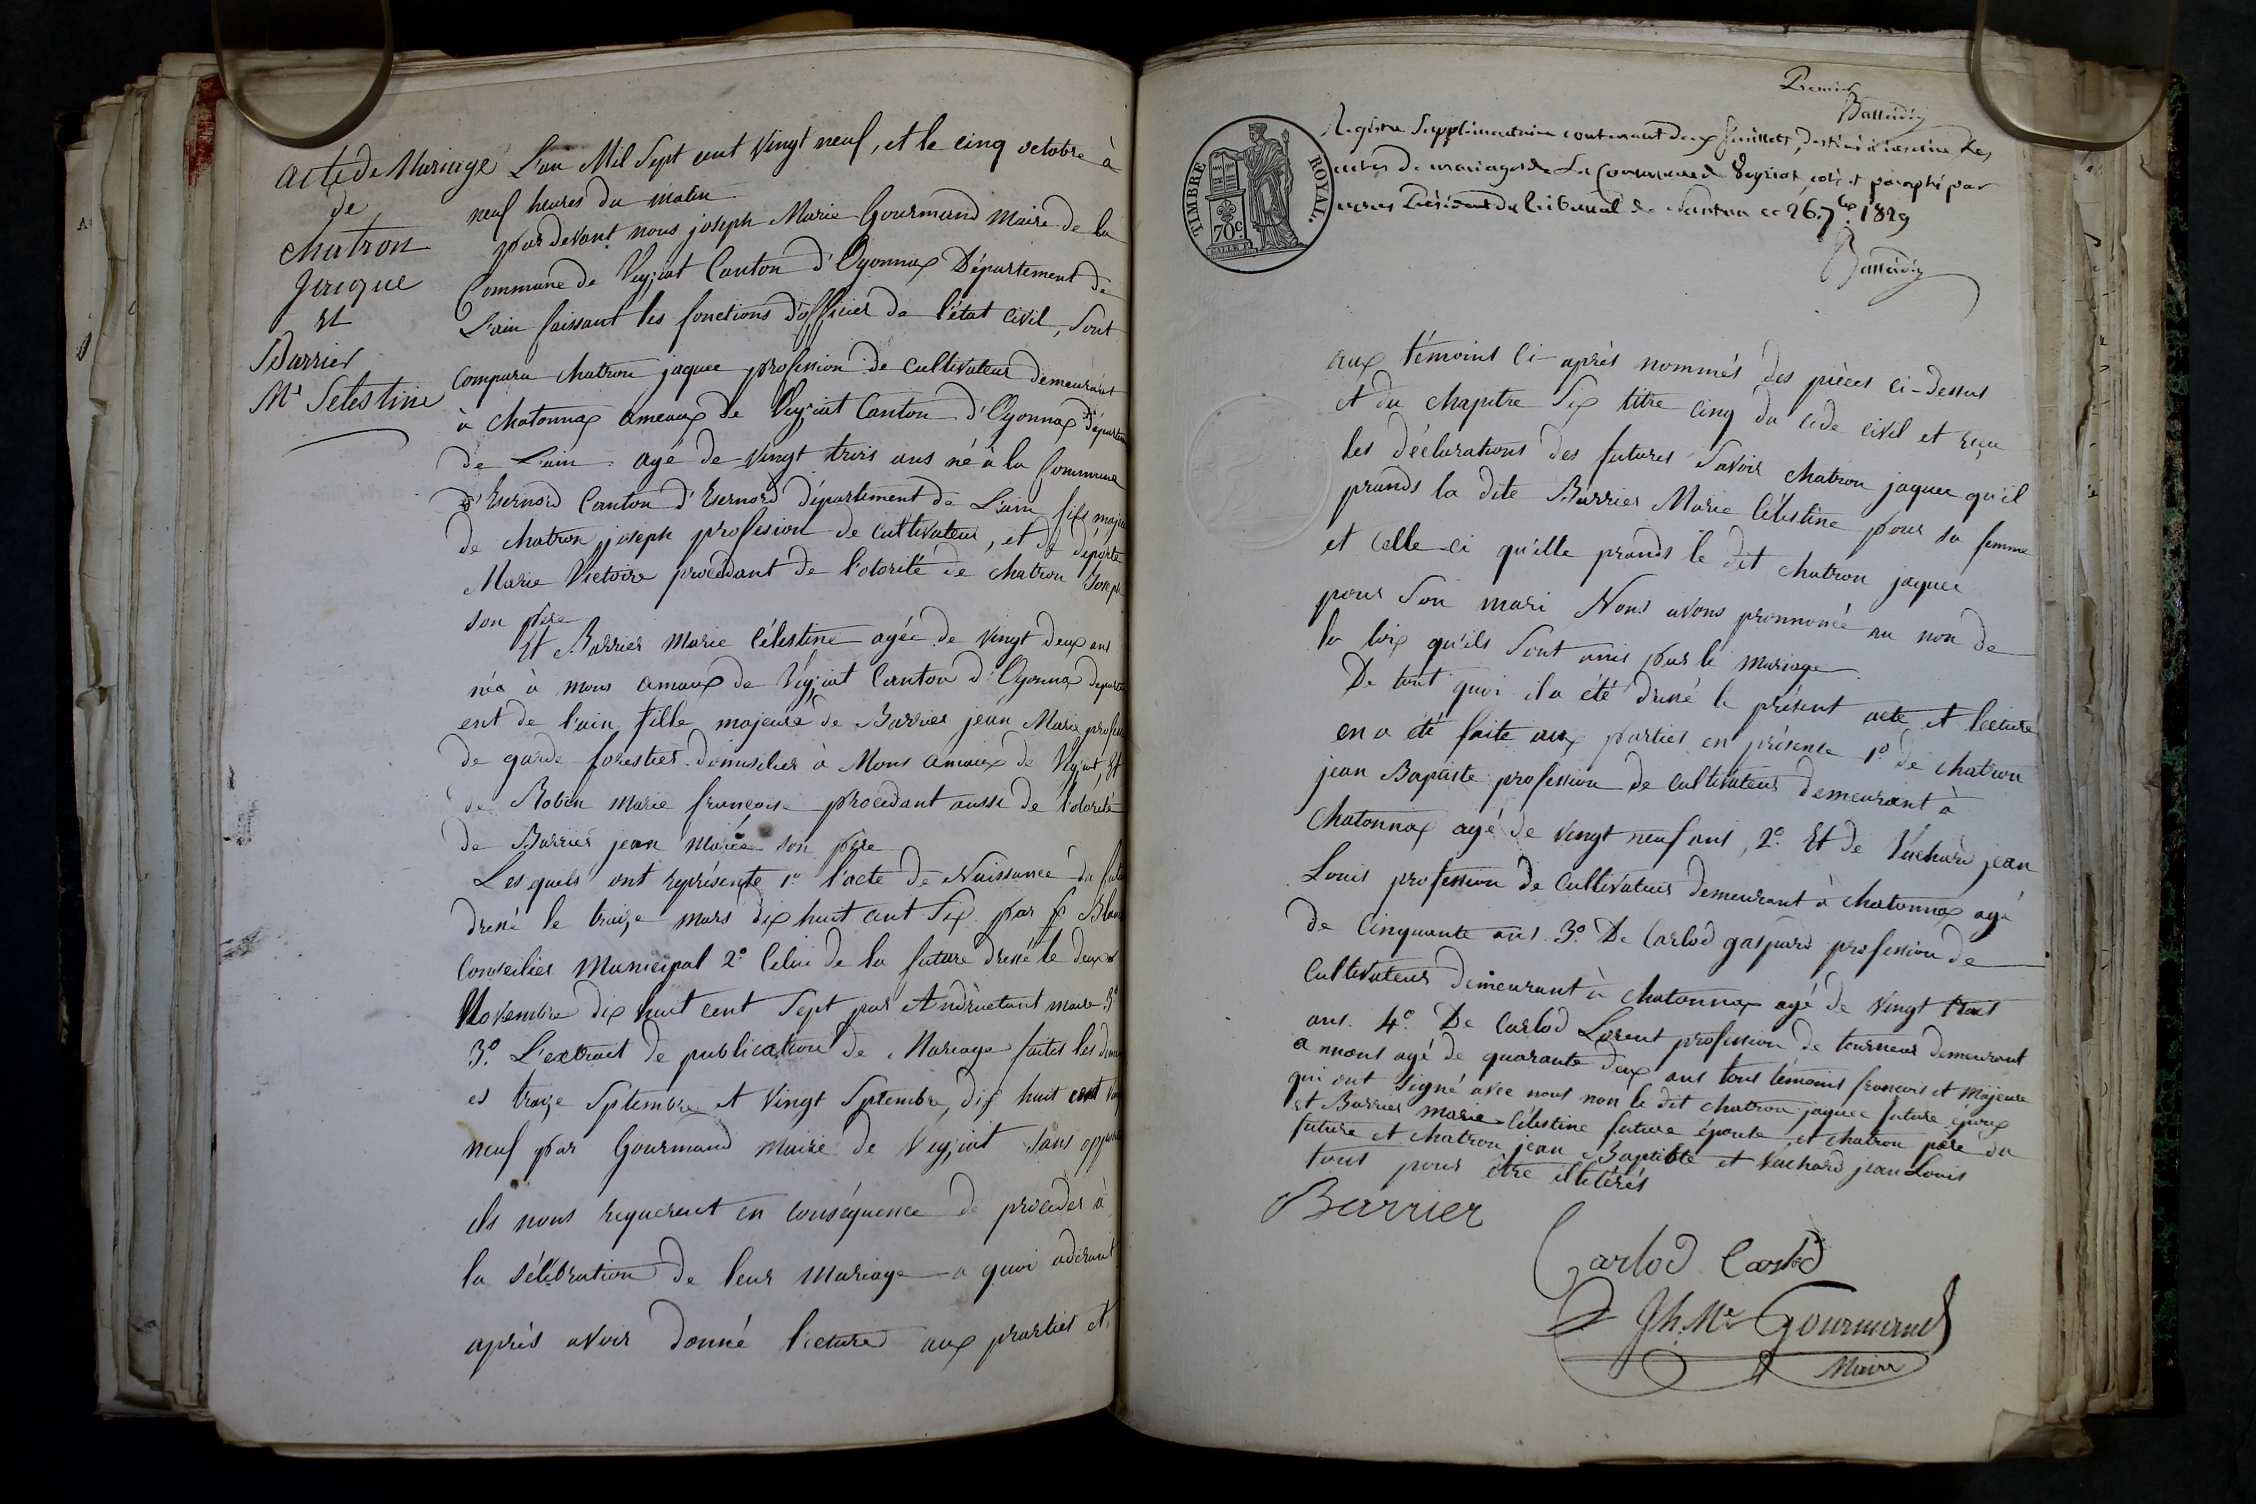 acte de Mariage
de
chatron
jacque
et
Barrier
Me Selestine
L'an Mil Sept cent Vingt neuf, et le cinq octobre à
neuf heures du matin
par devant nous joseph Marie Gourmand Maire de la
Commune de Veyziat Canton d'Oyonnax Département de
L'ain faissant les fonctions d'officier de l'état civil, Sont
comparu chatron jaque profession de cultivateur demeurant
à chatonnax ameaux de Veyziat Canton d'Oyonnax Départem
de L'ain agé de vingt trois ans né à la Commune
d'Esernord Canton d'Esernord département de L'ain fils majeur
de chatron joseph profession de cultivateur, et de
Marie Victoire procédant de l'otorité de chatron Joseph
son père
Et Barrier Marie Célestine agée de vingt deux ans
née à mons amaux de Veyziat Canton d'Oyonnax departem
ent de l'ain fille majeure de Barrier jean Marie profession
de garde forestier domicilier à Mons amaux de Veyziat, et
de Robin Marie françoise procédant aussi de l'otorité
de Barrier jean Marie son père
Les quels ont représenté 1o l'acte de Naissance du futur
dressé le treize mars dix huit cent Six par
Conseilier Municipal 2o Celui de la future dressé le deux
Novembre dix huit cent Sept par maire 3o
3o L'extrait de publication de Mariage faites les diman
es treize Septembre et Vingt Septembre, dix huit cent vingt
neuf par Gourmand Maire de Veyziat Sans
ils nous requerent en conséquence de procéder à
la sélébration de leur Mariage a quoi adérant
après avoir donné lecture aux parties et
Premier
TIMBRE ROYAL.
70c
Registre Supplémentaire contenant deux feuillets, destiné à inscrire les
actes de mariages de La Commune de Veyziat coté et paraphé par
nous Président du tribunal de Nantua ce 26. 7bre 1829
aux témoins ci-après nommés des pièces ci-dessus
et du chapitre Six titre cinq du code civil et reçu
les déclarations des futures Savoir chatron jaque qu'il
prands la dite Barrier Marie Célestine pour sa femme
et celle-ci qu'elle prands le dit chatron jaque
pour Son mari Nous avons pronnoncé au non de
la loix qu'ils Sont unis par le mariage
De tout quoi il a été dressé le présent acte et lecture
en a été faite aux parties en présence 1o de chatron
jean Baptiste profession de cultivateur demeurant à
Chatonnax agé de vingt neuf ans, 2o Et de Vuchard jean
Louis profession de Cultivateur demeurant à chatonnax agé
de Cinquante ans. 3o De Carlod gaspard profession de
Cultivateur demeurant à chatonnax agé de Vingt
ans. 4o De Carlod Lorent profession de tourneur demeurant
a mons agé de quarante deux ans tous témoins françois et Majeure
qui ont Signé avec nous non le dit chatron jaque future époux
et Barrier Marie Célestine future épouse et chatron père du
future et chatron jean Baptiste et Vuchard jean Louis
tous pour être illétérés
Barrier
Carlod Carlod
Jh. Me Gourmand
Maire